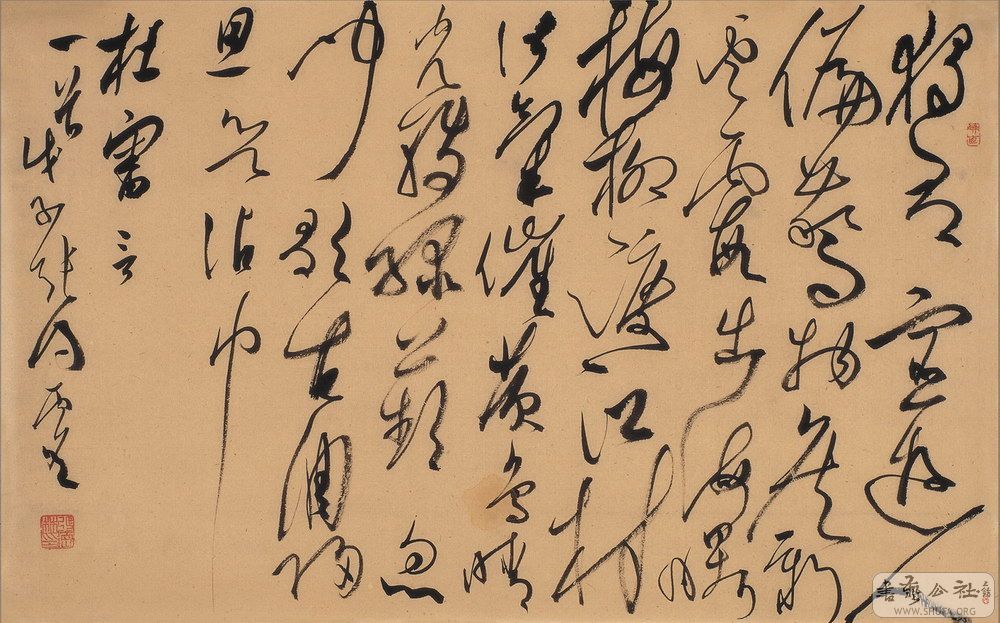 獨有宦遊人
偏驚物候新
雲霞出海曙
梅柳渡江村
淑氣催黃鳥晴
光轉綠蘋忽
聞歌古調歸
思欲沾巾
杜審言
一首戊子張
書藝公社
WWW.SHUFA.ORG